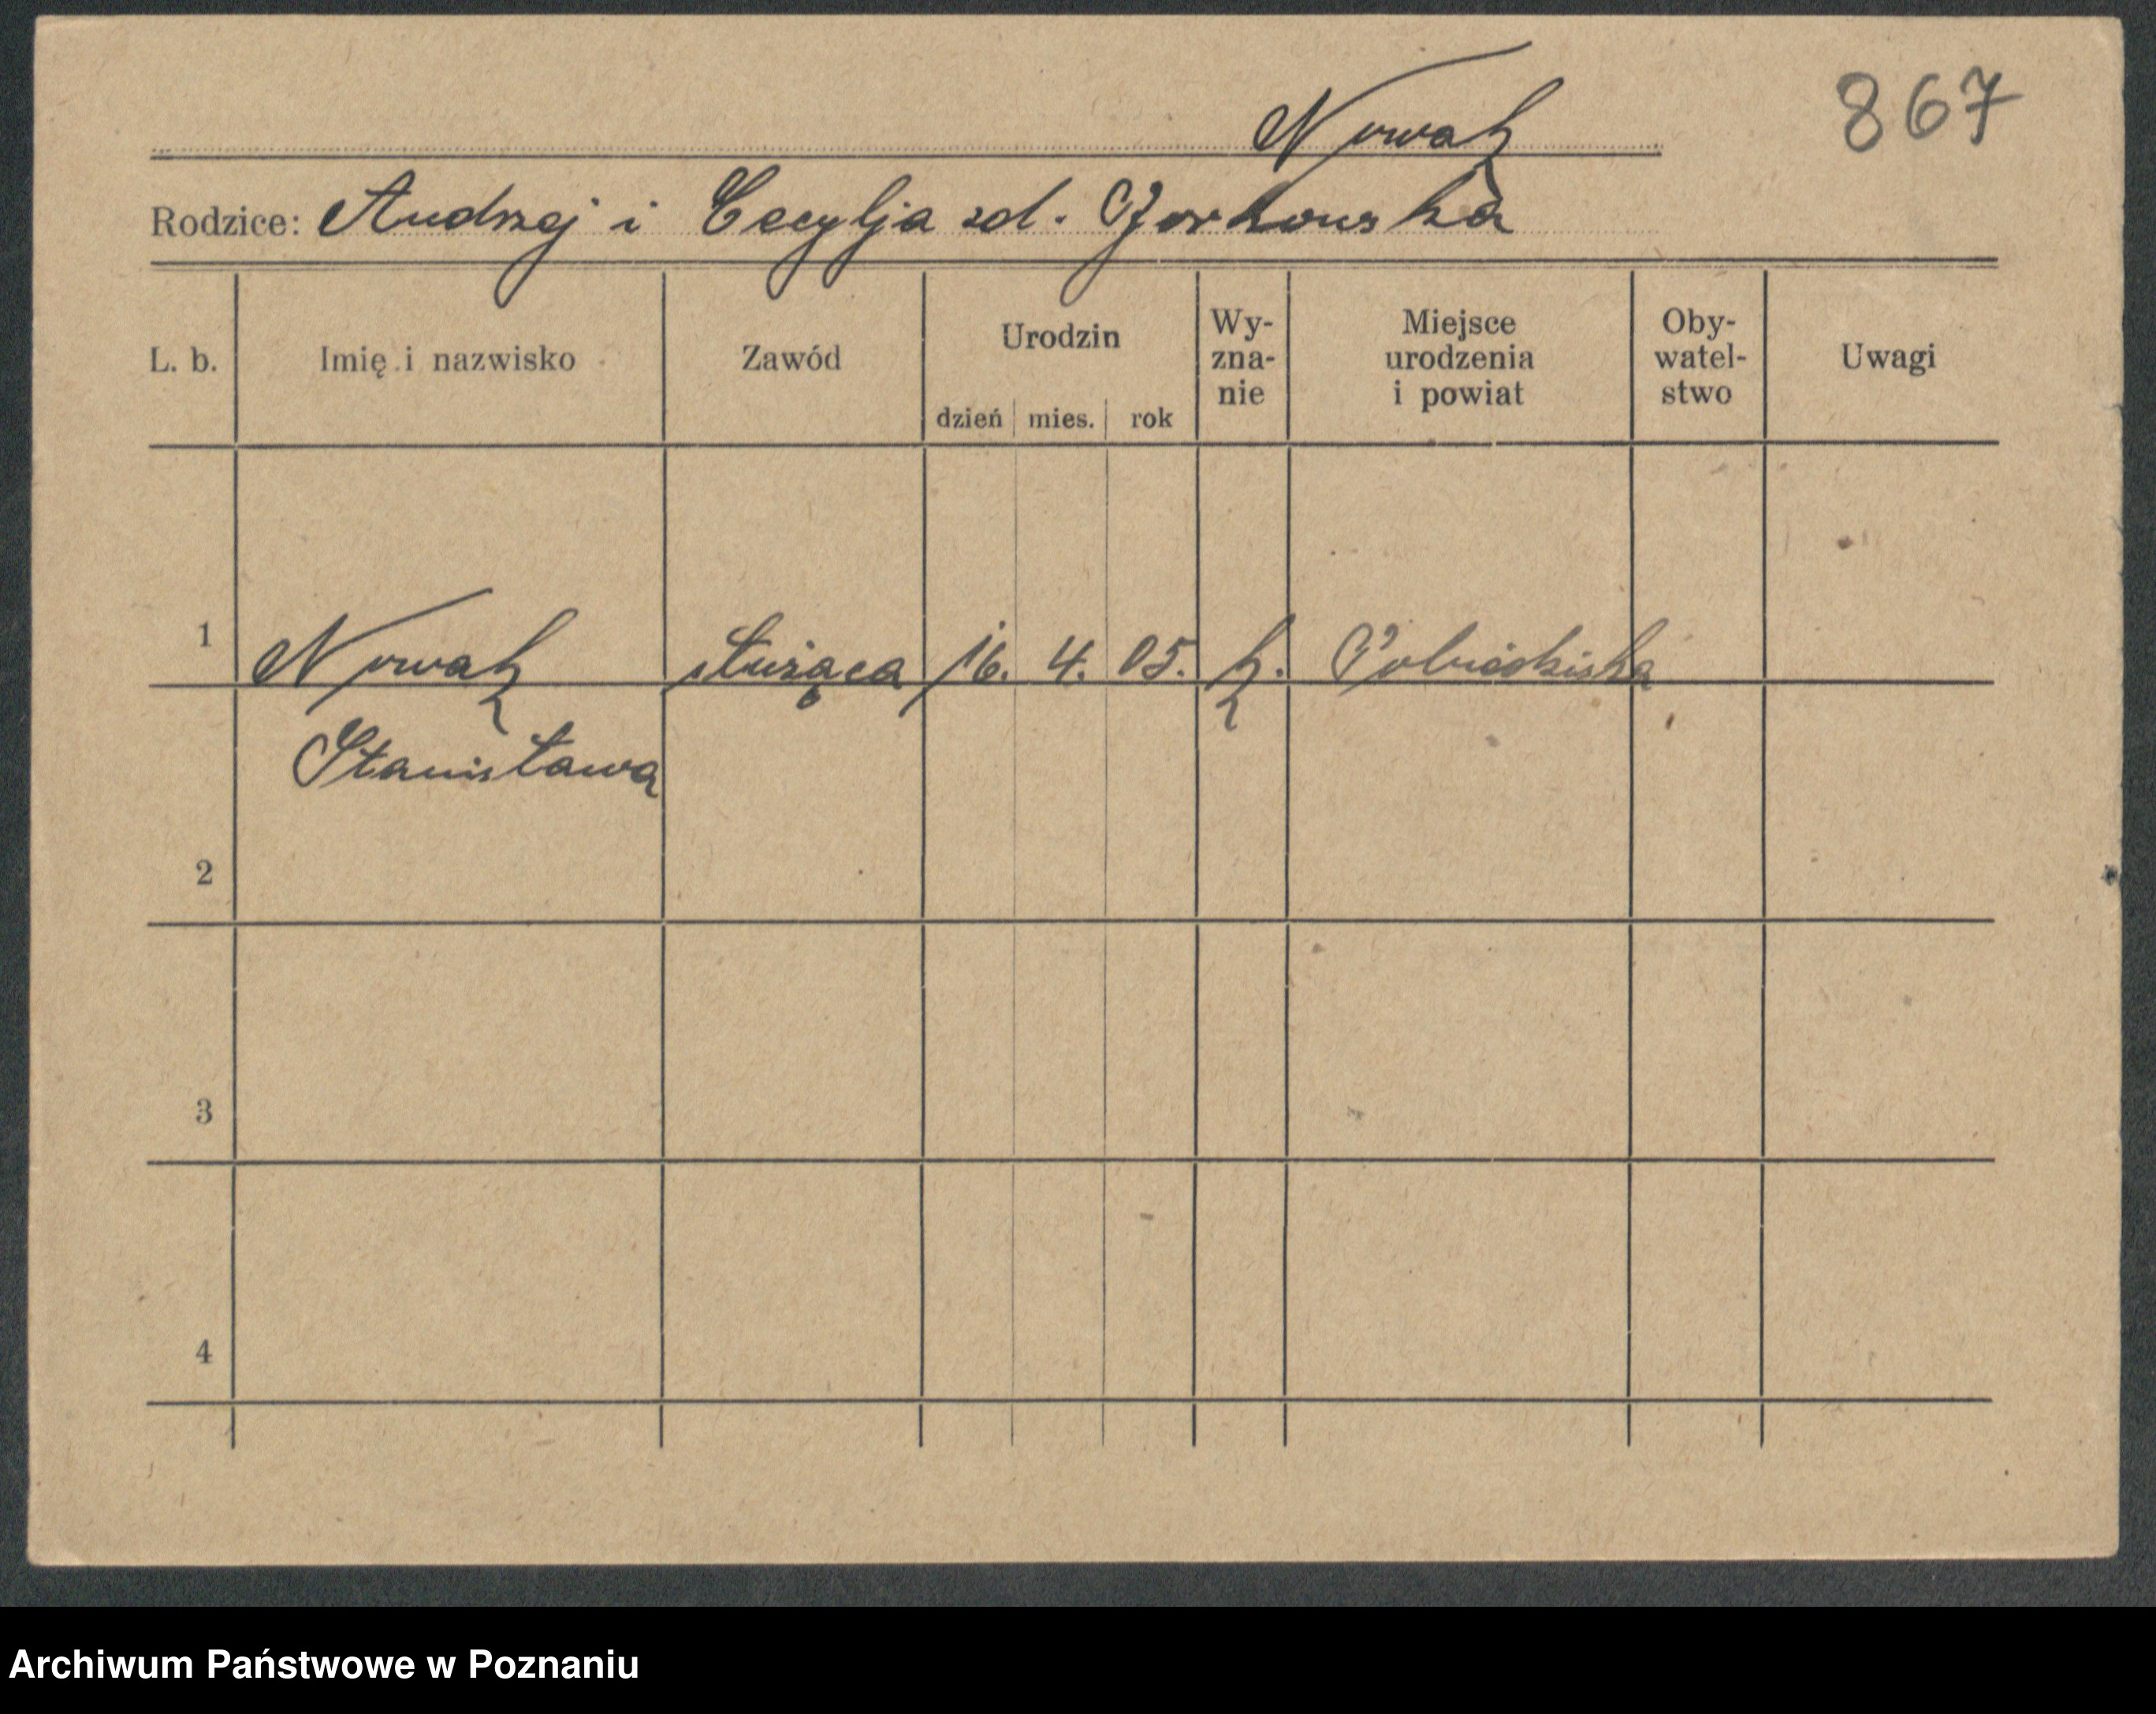 Nowak
867
Rodzice: Andrzej i Cecylja zd. Gorkowska
L. b. Imię i nazwisko Zawód Urodzin dzień mies. rok Wy-zna-nie Miejsce urodzenia i powiat Oby-watel-stwo Uwagi
1 Nowak służąca 16. 4. 05. k. Pobiedziska
Stanisława
2
3
4
Archiwum Państwowe w Poznaniu